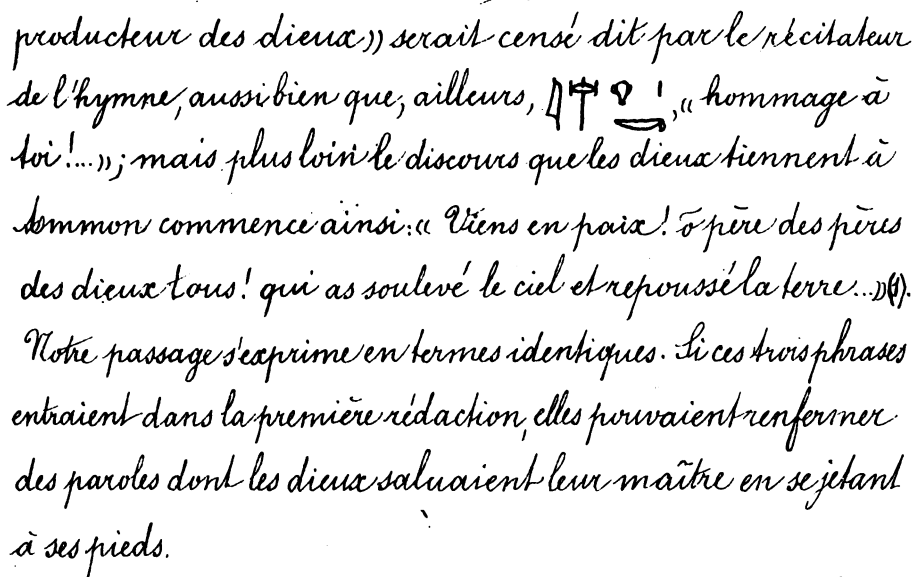 producteur des dieux» serait censé dit par le récitateur
de l'hymne, aussi bien que, ailleurs, , « hommage à
toi !...»; mais plus loin le discours que les dieux tiennent à
commence ainsi : « Viens en paix ! ô père des pères
des dieux tous ! qui as soulevé le ciel et repoussé la terre ...»(1).
Notre passage s'exprime en termes identiques. Si ces trois phrases
entraient dans la première rédaction, elles pouvaient renfermer
des paroles dont les dieux saluaient leur maître en se jetant
à ses pieds.